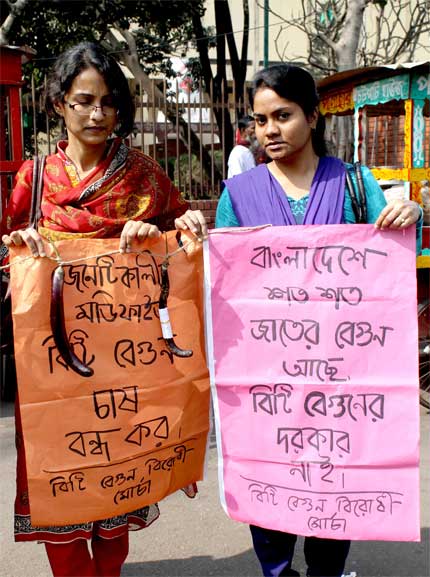 জেনেটিকালী
মডিফাইড
বিটি বেগুন
চাষ
বন্ধ কর।
বিটি বেগুন বিরোধী
মোর্চা
বাংলাদেশে
শত শত
জাতের বেগুন
আছে,
বিটি বেগুনের
দরকার
নাই।
বিটি বেগুন বিরোধী
মোর্চা